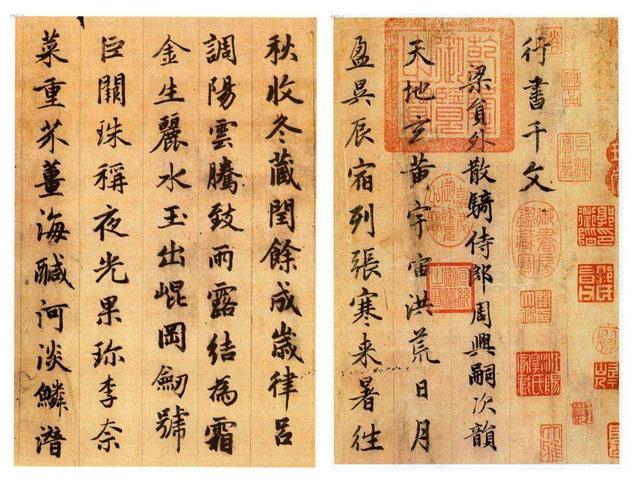 行書千文
梁貟外散騎侍郎周興嗣次韻
天地玄黃宇宙洪荒日月
盈昃辰宿列張寒来暑往
秋收冬藏閏餘成嵗律呂
調陽雲騰致雨露結為霜
金生麗水玉出崐岡劒號
巨闕珠稱夜光果珎李柰
菜重芥薑海醎河淡鱗潛